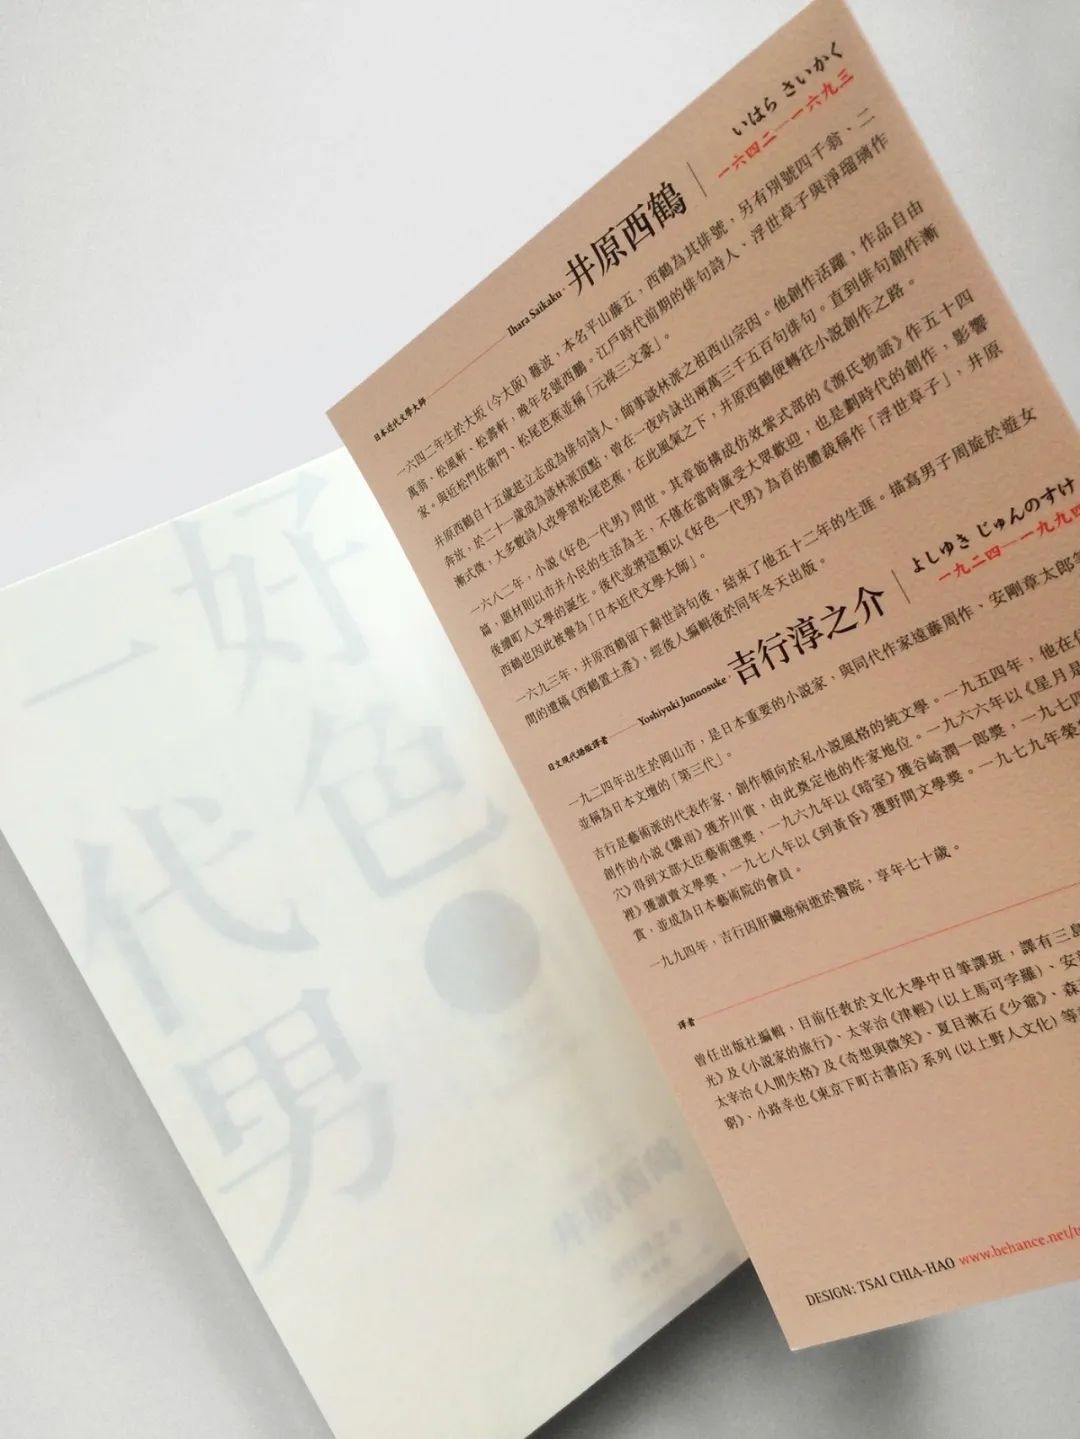 好色
一代男
日本近代文學大師
Ihara Saikaku · 井原西鶴 | いはら さいかく
一六四二—一六九三
一六四二年生於大坂(今大阪)難波,本名平山藤五,西鶴為其俳號,另有別號四千翁、二
萬翁、松風軒、松壽軒,晚年名號西鵬。江戶時代前期的俳句詩人、浮世草子與淨瑠璃作
家。與近松門佐衛門、松尾芭蕉並稱「元祿三文豪」。
井原西鶴自十五歲起立志成為俳句詩人,師事談林派之祖西山宗因。他創作活躍,作品自由
奔放,於二十一歲成為談林派頂點,曾在一夜吟詠出兩萬三千五百句俳句。直到俳句創作漸
漸式微,大多數詩人改學習松尾芭蕉,在此風氣之下,井原西鶴便轉往小説創作之路。
一六八二年,小說《好色一代男》問世。其章節構成仿效紫式部的《源氏物語》作五十四
篇,題材則以市井小民的生活為主,不僅在當時廣受大眾歡迎,也是劃時代的創作,影響
後續町人文學的誕生。後代並將這類以《好色一代男》為首的體裁稱作「浮世草子」,井原
西鶴也因此被譽為「日本近代文學大師」。
一六九三年,井原西鶴留下辭世詩句後,結束了他五十二年的生涯。描寫男子周旋於遊女
間的遺稿《西鶴置土產》,經後人編輯後於同年冬天出版。
日文現代語版譯者
Yoshiyuki Junnosuke · 吉行淳之介 | よしゆき じゅんのすけ
一九二四—一九九四
一九二四年出生於岡山市,是日本重要的小說家,與同代作家遠藤周作、安剛章太郎等
並稱為日本文壇的「第三代」。
吉行是藝術派的代表作家,創作傾向於私小說風格的純文學。一九五四年,他在
創作的小說《驟雨》獲芥川賞,由此奠定他的作家地位。一九六六年以《星月是
穴》得到文部大臣藝術選獎,一九六九年以《暗室》獲谷崎潤一郎獎,一九七四
裡》獲讀賣文學獎,一九七八年以《到黃昏》獲野間文學獎。一九七九年榮
賞,並成為日本藝術院的會員。
一九九四年,吉行因肝臟癌病逝於醫院,享年七十歲。
譯者
曾任出版社編輯,目前任教於文化大學中日筆譯班,譯有三島
光》及《小說家的旅行》、太宰治《津輕》(以上馬可孛羅)、安
太宰治《人間失格》及《奇想與微笑》、夏目漱石《少爺》、森
窮》、小路幸也《東京下町古書店》系列(以上野人文化)等
DESIGN: TSAI CHIA-HAO www.behance.net/ts
井原西鶴